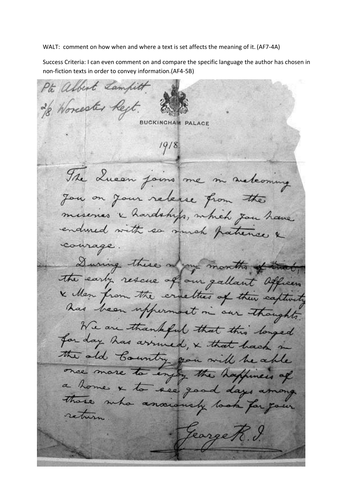 WALT: comment on how when and where a text is set affects the meaning of it. (AF7-4A)
Success Criteria: I can even comment on and compare the specific language the author has chosen in
non-fiction texts in order to convey information.(AF4-5B)
Pte Albert Lampitt
2/8 Worcester Regt.
BUCKINGHAM PALACE
1918
The Queen joins me in welcoming
you on your release from the
miseries & hardships, which you have
endured with so much patience &
courage.
During these many months of trial
the early rescue of our gallant Officers
& Men from the cruelties of their captivity
has been uppermost in our thoughts.
We are thankful that this longed
for day has arrived, & that back in
the old Country you will be able
once more to enjoy the happiness of
a home & to see good days among
those who anxiously look for your
return
George R.I.